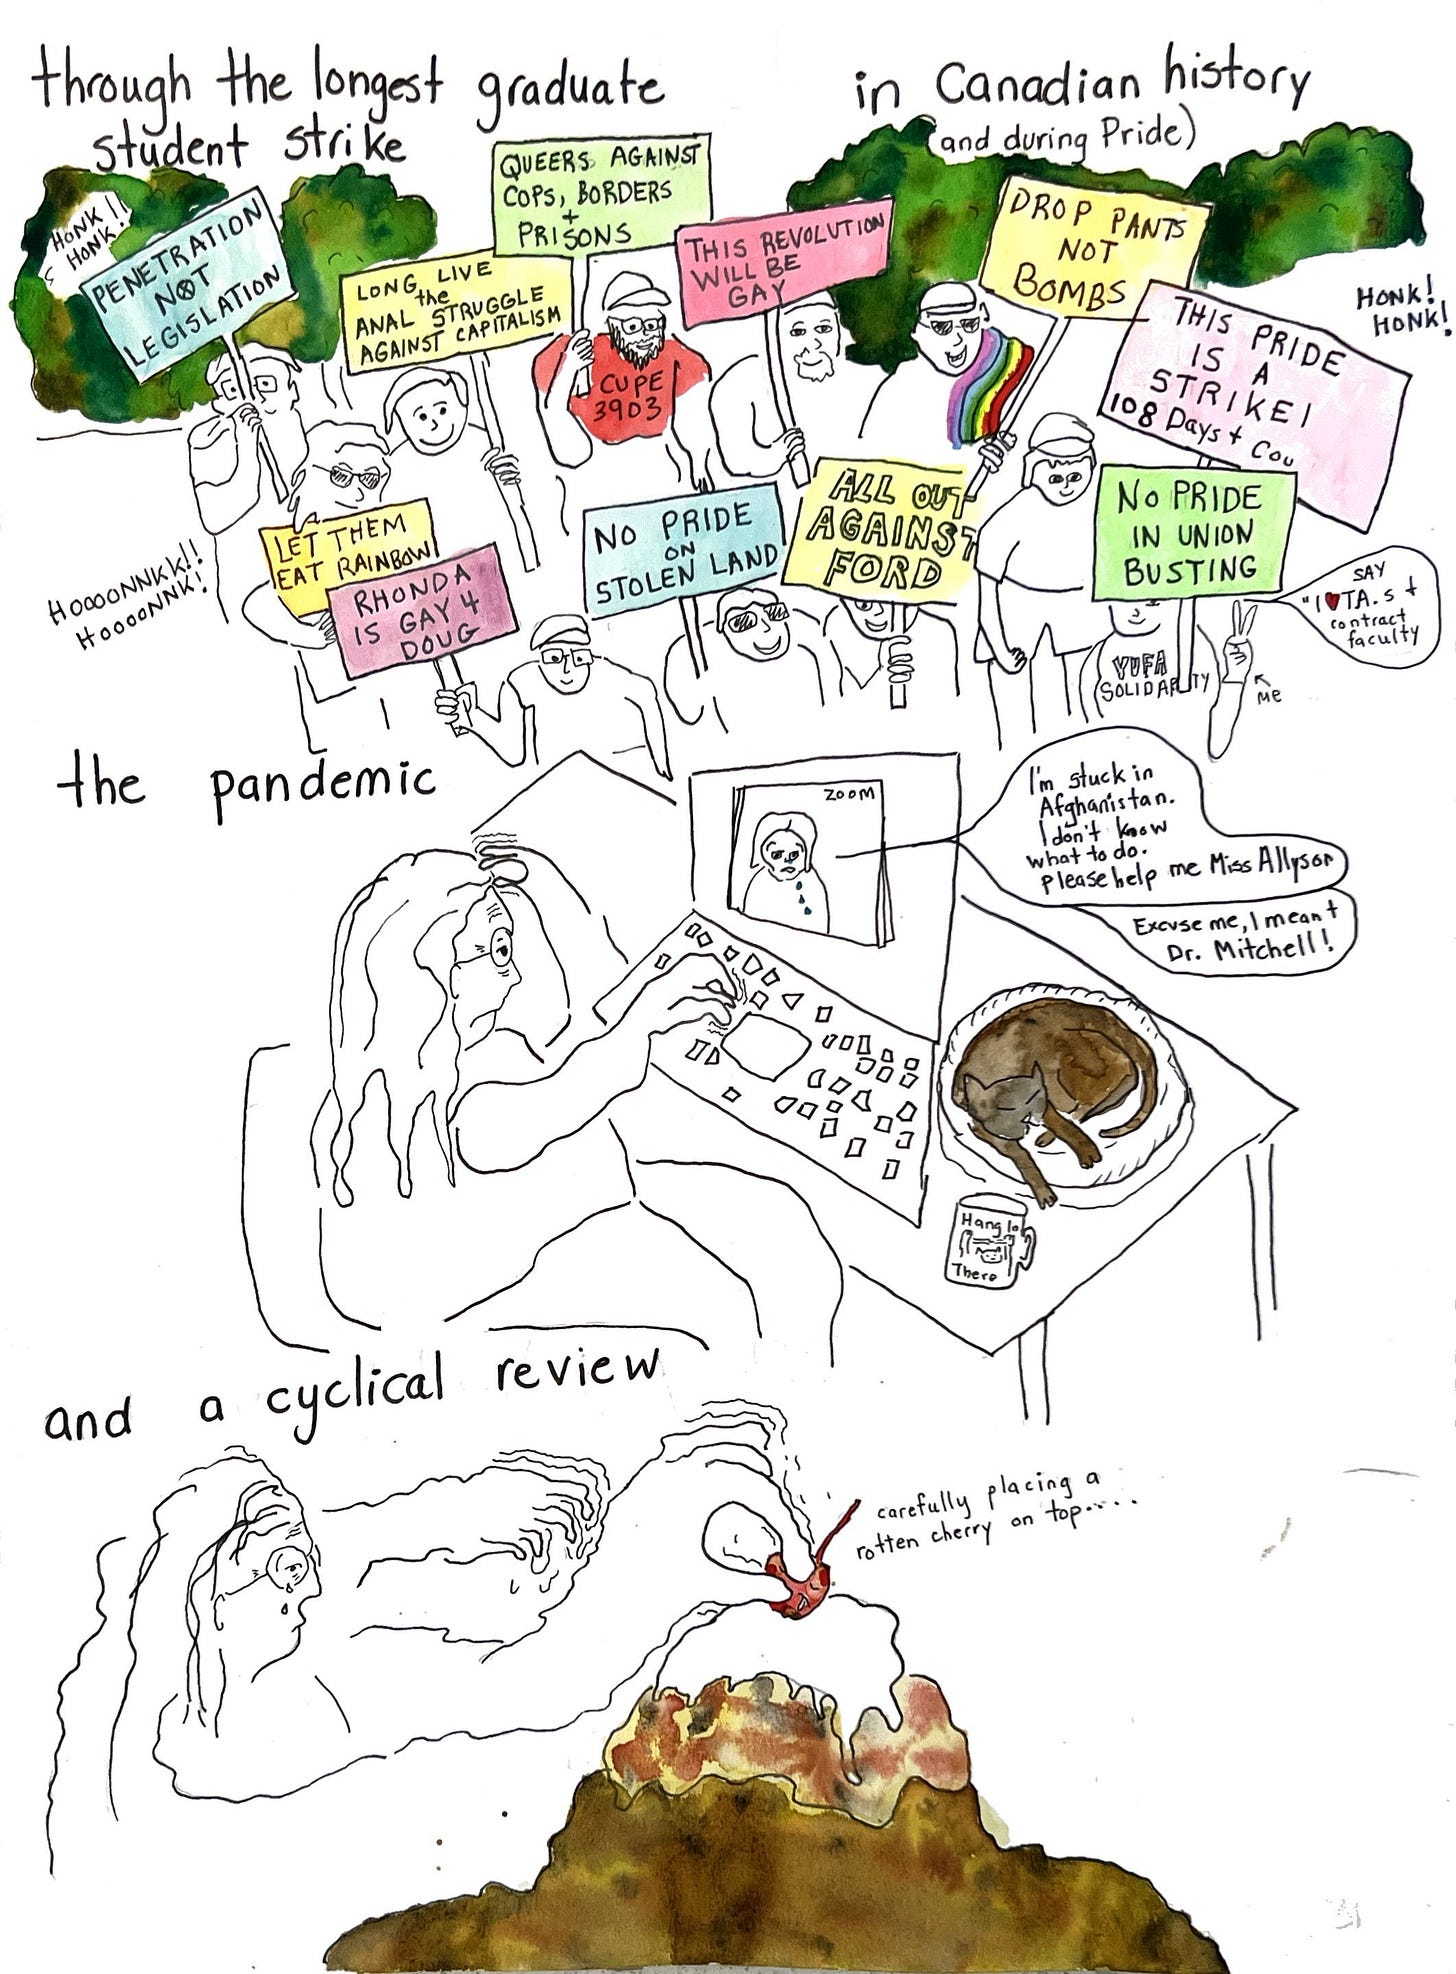 through the longest graduate
student strike
in Canadian history
(and during Pride)
HONK!!
HONK!
PENETRATION
NOT
LEGISLATION
LONG LIVE
the
ANAL STRUGGLE
AGAINST CAPITALISM
QUEERS AGAINST
COPS, BORDERS
+
PRISONS
CUPE
3903
THIS REVOLUTION
WILL BE
GAY
DROP PANTS
NOT
BOMBS
THIS PRIDE
IS A
STRIKE!
108 Days +
HONK!
HONK!
HOOOONNKK!!
HOOOONNK!
LET THEM
EAT RAINBOW
RHONDA
IS GAY 4
DOUG
NO PRIDE
ON
STOLEN LAND
ALL OUT
AGAINST
FORD
NO PRIDE
IN UNION
BUSTING
SAY
"I ♥ TA.s +
contract
faculty
YUFA
SOLIDARITY
ME
the pandemic
ZOOM
I'm stuck in
Afghanistan.
I don't know
what to do.
please help me Miss Allyson
Excuse me, I meant
Dr. Mitchell!
Hang In
There
and a cyclical review
carefully placing a
rotten cherry on top.....